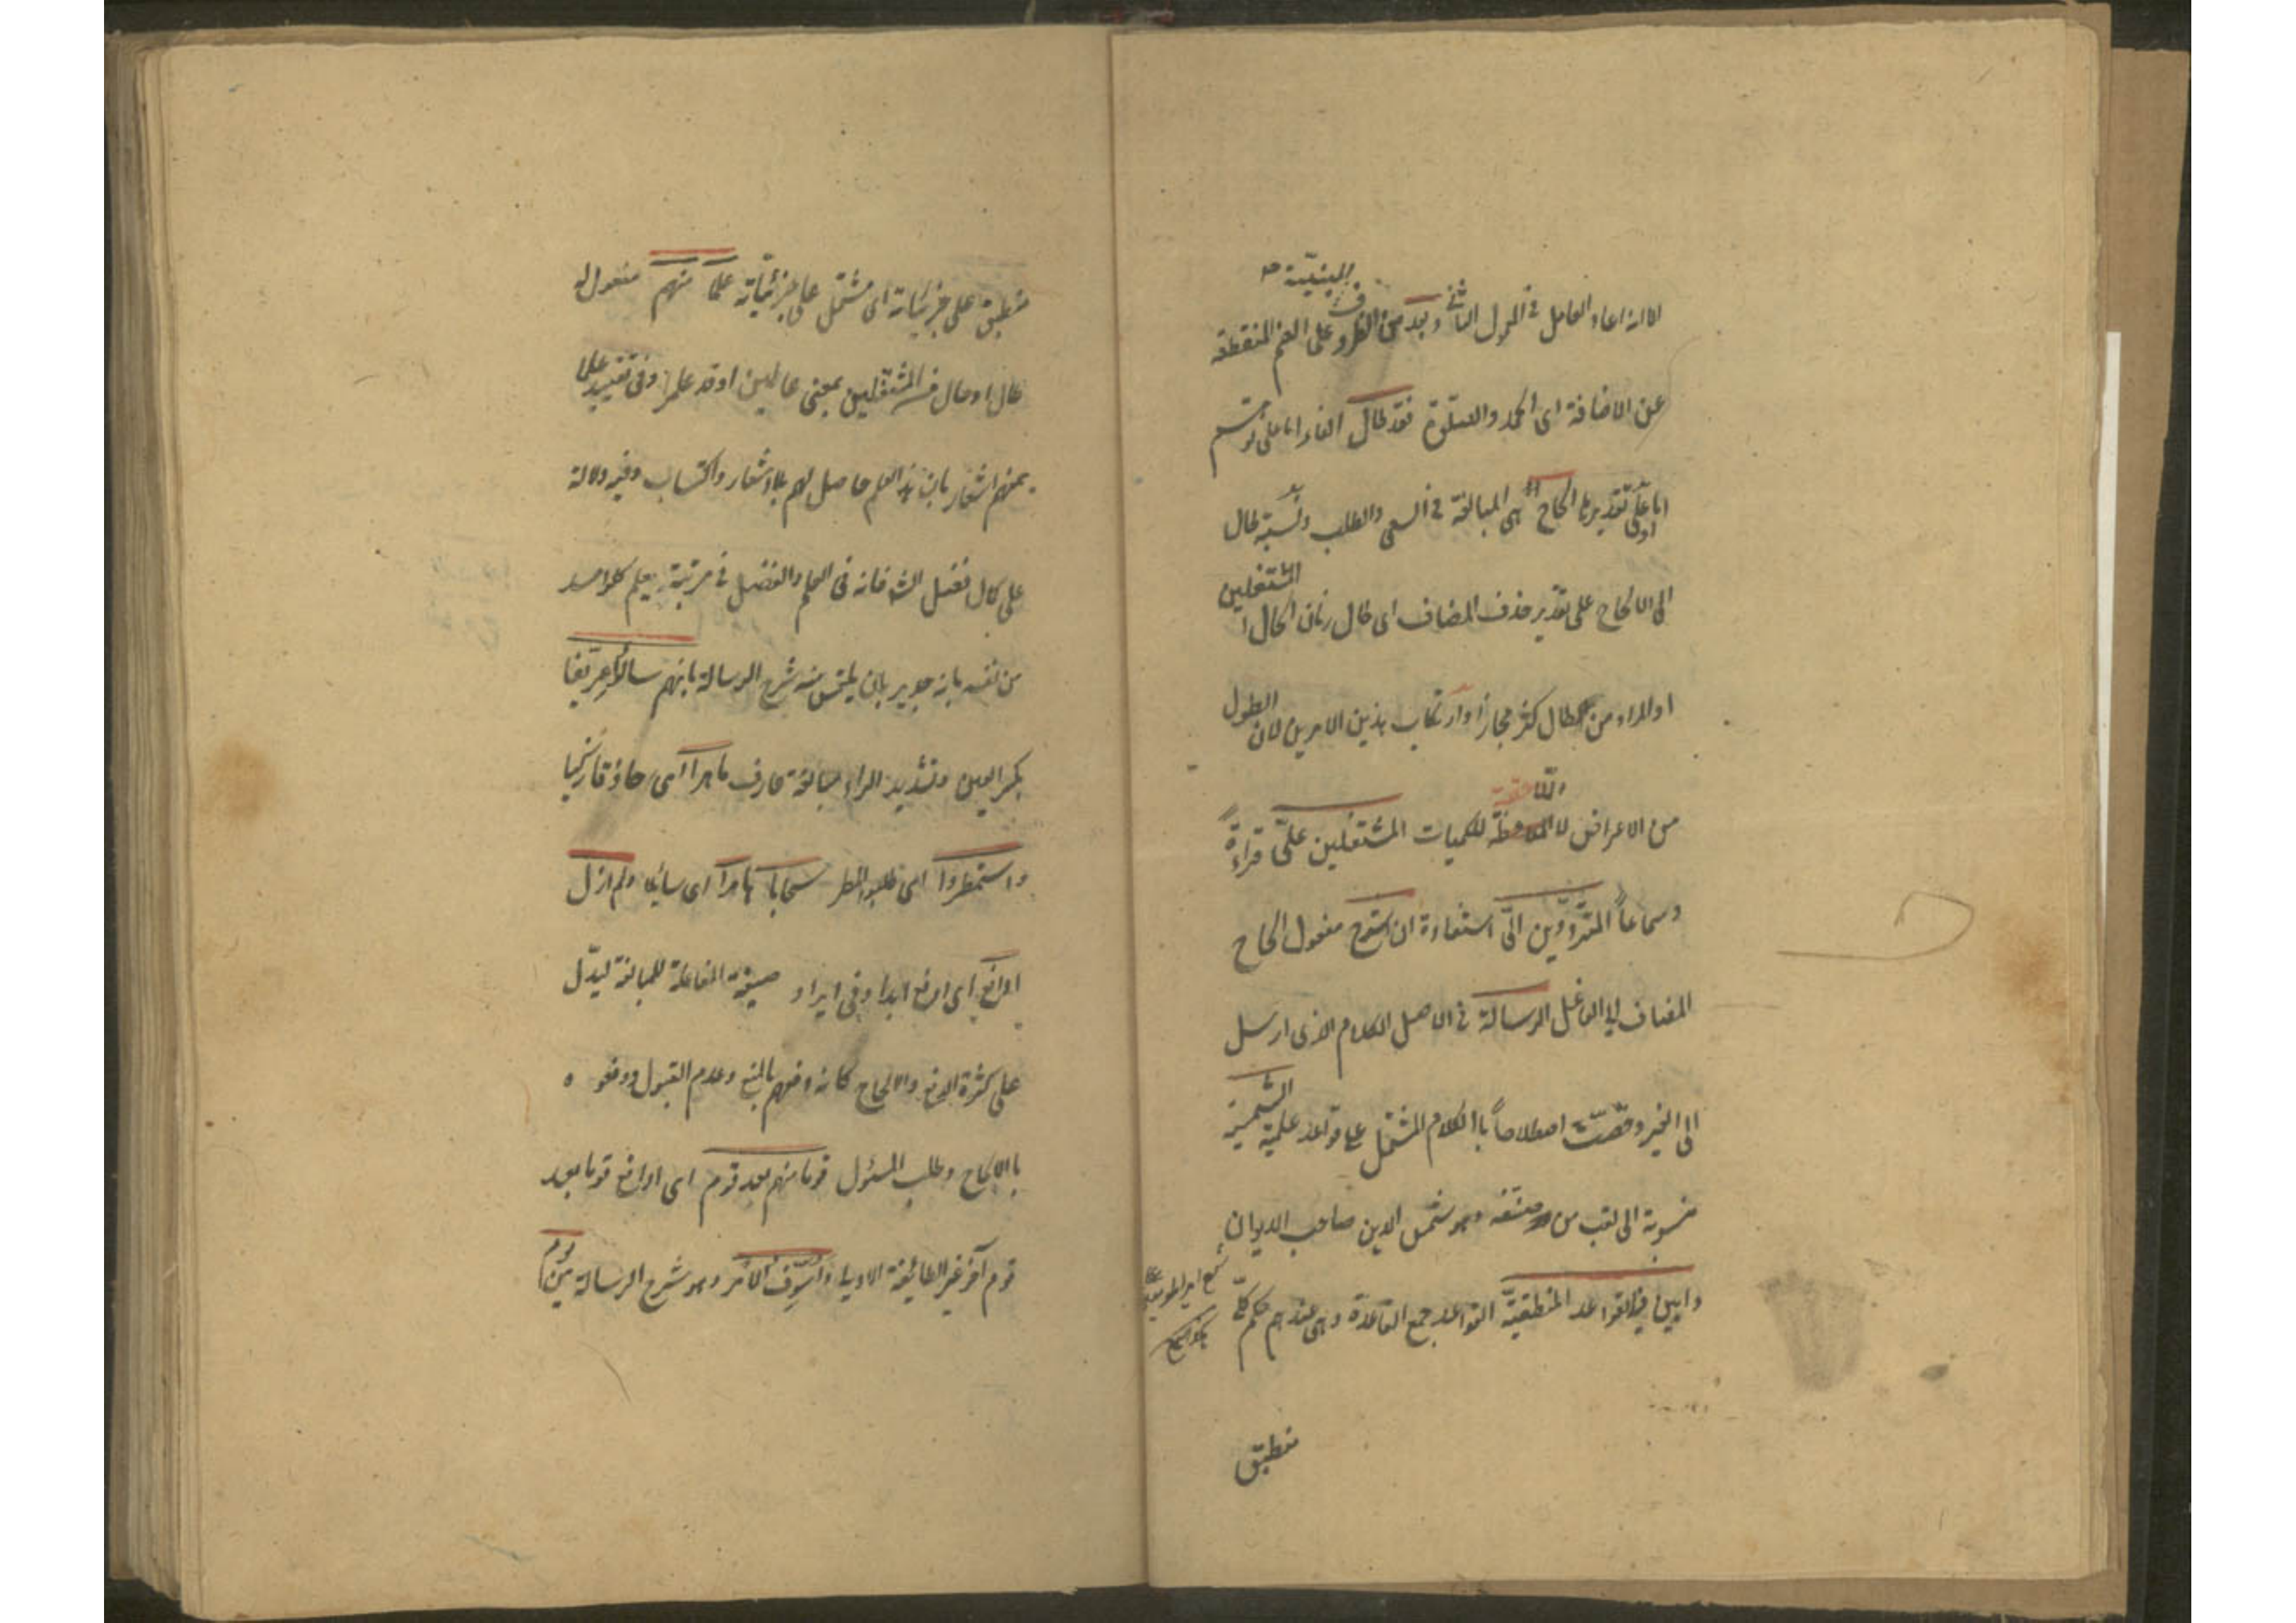 الا انه اعاد العامل في الاول الثاني وبعد من الظروف المبنية على الضم المنقطعة
عن الاضافة اى الحمد والصلوة فقد طال الفاء اما على توهم
اما او على تقديرها الحاح هى المبالغة في السعى والطلب ونسبة طال
الى الالحاح على تقدير حذف المضاف اى طال زمان الحاح المشتغلين
او المراد من طال كثر مجازا وارتكاب هذين الامرين لان الطول
من الاعراض اللاحقة للكميات المشتغلين علىّ قراءةً
وسماعاً المترددين الىّ استفادة ان اشرح مفعول الحاح
المضاف الى الفاعل الرسالة في الاصل الكلام الذى ارسل
الى الغير وخصّت اصطلاحاً بالكلام المشتمل على قواعد علمية الشمسية
منسوبة الى لقب من صنفه وهو شمس الدين صاحب الديوان
وابين فيه القواعد المنطقية القواعد جمع القاعدة وهى عندهم حكم كلى
منطبق
منطبق على جزئياته اى مشتمل على جزئياته علما منهم مفعول له
طال او حال من المشتغلين بمعنى عالمين او قد علموا وفى تقييد علما
بمنهم اشعار بان هذا العلم حاصل لهم بلا اشعار واكتساب وفيه دلالة
على كمال فضل الش فانه فى العلم والفضل في مرتبة يعلم كل واحد
من نفسه بانه جدير بان يلتمس منه شرح الرسالة بانهم سألوا عرّيفا
بكسر العين وتشديد الراء مبالغة عارف ماهرا اى حاذقا راسخا
واستمطروا اى طلبوا المطر سحابا هامرا اى سائلا ولم ازل
ادافع اى ادفع ابدا وفى ايراد صيغة المفاعلة للمبالغة ليدلّ
على كثرة الدفع والالحاح كانه دفعهم بالمنع وعدم القبول ودفعوه
بالالحاح وطلب المسئول قوما منهم بعد قوم اى ادافع قوما بعد
قوم آخر غير الطائفة الاولى واسوّف الامر وهو شرح الرسالة من يوم